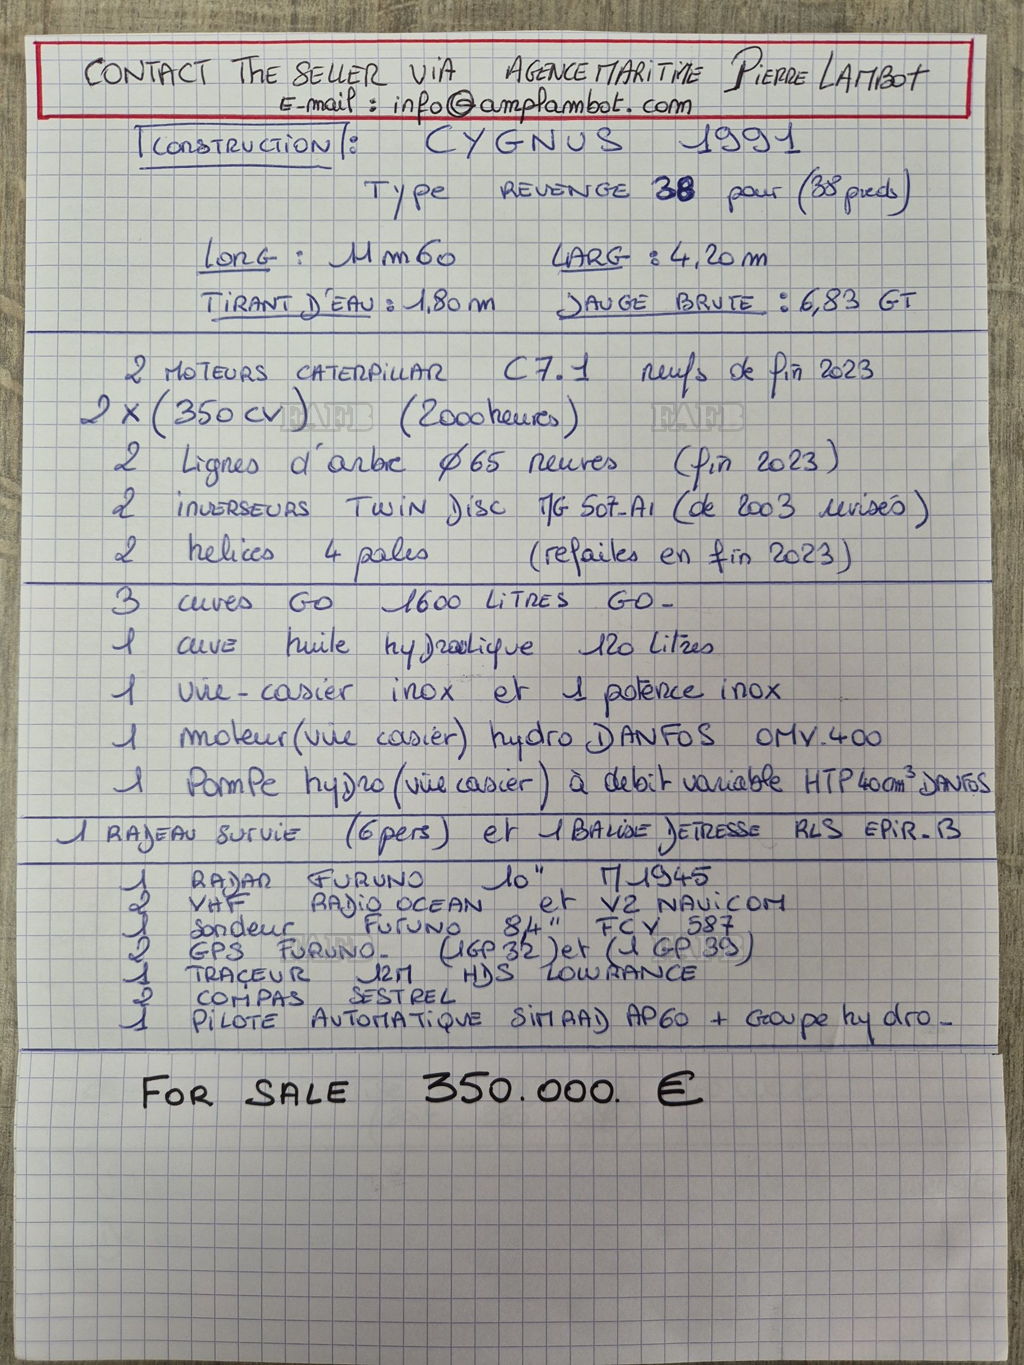 CONTACT THE SELLER VIA AGENCE MARITIME PIERRE LAMBOT
E-mail : info@amplambot.com
CONSTRUCTION : CYGNUS 1991
Type REVENGE 38 pour (38 pieds)
LONG : 11m60 LARG : 4,20m
TIRANT D'EAU : 1,80m JAUGE BRUTE : 6,83 GT
2 MOTEURS CATERPILLAR C7.1 neufs de fin 2023
2 x (350 CV) (2000 heures)
EAFB EAFB
2 Lignes d'arbre ø65 neuves (fin 2023)
2 INVERSEURS TWIN DISC MG 507-A1 (de 2003 révisés)
2 helices 4 pales (refaites en fin 2023)
3 cuves GO 1600 LITRES GO-
1 cuve huile hydraulique 120 Litres
1 vire-casier inox et 1 potence inox
1 moteur (vire casier) hydro DANFOS OMV.400
1 Pompe hydro (vire casier) à debit variable HTP 40cm³ DANFOS
1 RADEAU SURVIE (6 pers) et 1 BALISE DETRESSE RLS EPIR-B
1 RADAR FURUNO 10" M1945
2 VHF RADIO OCEAN et V2 NAVICOM
1 Sondeur FURUNO 8,4" FCV 587
2 GPS FURUNO- (1 GP 32) et (1 GP 39)
EAFB EAFB
1 TRACEUR 12M HDS LOWRANCE
2 COMPAS SESTREL
1 PILOTE AUTOMATIQUE SIMRAD AP60 + Groupe hydro-
FOR SALE 350.000. €